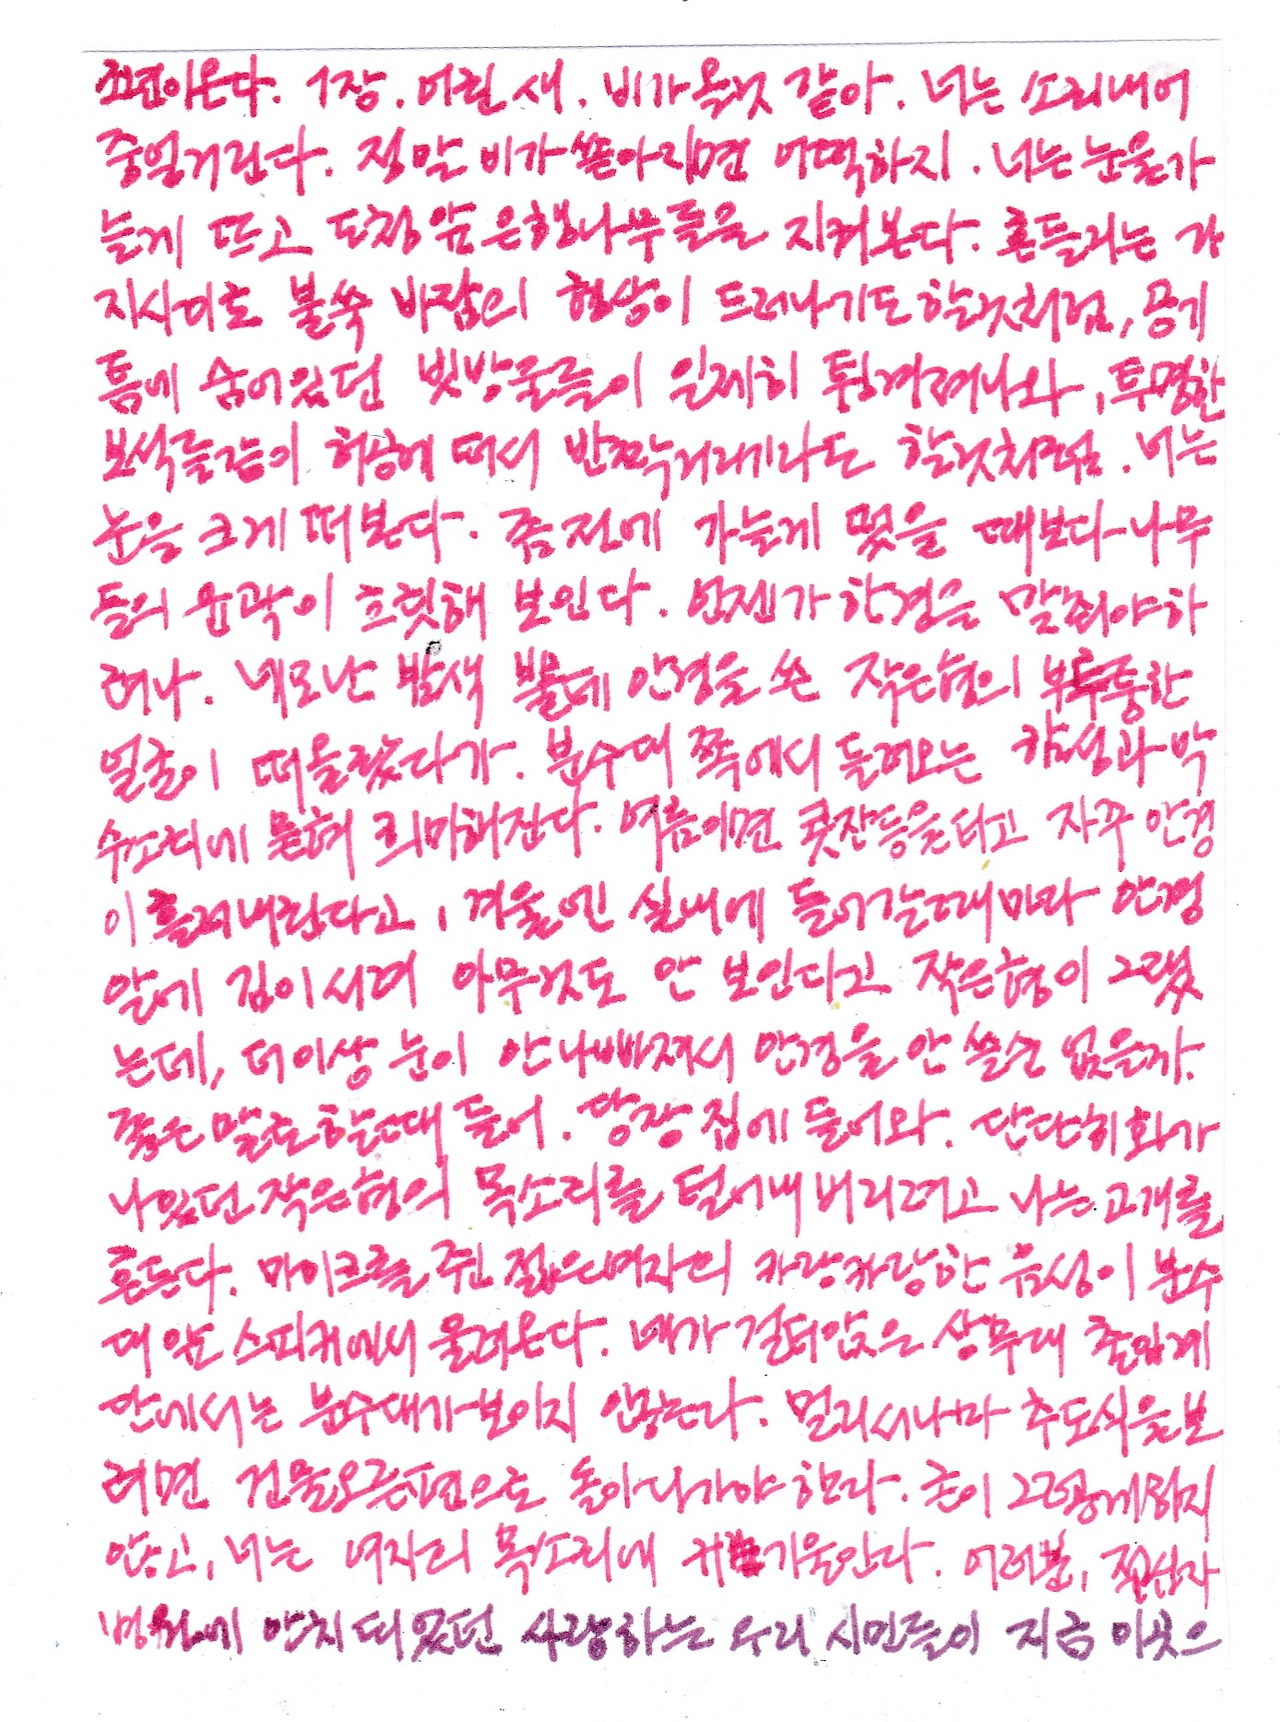 소년이온다. 1장. 어린 새. 비가 올것 같아. 너는 소리내어
중얼거린다. 정말 비가 쏟아지면 어떡하지. 너는 눈을 가
늘게 뜨고 도청 앞 은행나무들을 지켜본다. 흔들리는 가
지사이로 불쑥 바람의 형상이 드러나기도 할것처럼, 공기
틈에 숨어있던 빗방울들이 일제히 튕겨져나와, 투명한
보석들같이 허공에 떠서 반짝거리기라도 할것처럼. 너는
눈을 크게 떠본다. 좀 전에 가늘게 떴을 때보다 나무
들의 윤곽이 흐릿해 보인다. 언젠가 안경을 맞춰야 하
려나. 네모난 밤색 뿔테 안경을 쓴 작은형의 부루퉁한
얼굴이 떠올랐다가. 분수대 쪽에서 들려오는 함성과 박
수소리에 묻혀 희미해진다. 여름이면 콧잔등을 타고 자꾸 안경
이 흘러내린다고, 겨울엔 실내에 들어갈때마다 안경
알에 김이 서려 아무것도 안 보인다고 작은형이 그랬
는데, 더이상 눈이 안 나빠져서 안경을 안 쓸순 없을까.
좋은 말로 할때 들어. 당장 집에 들어와. 단단히 화가
나있던 작은형의 목소리를 털어내 버리려고 너는 고개를
흔든다. 마이크를 쥔 젊은여자의 카랑카랑한 음성이 분수
대 앞 스피커에서 울려온다. 네가 걸터앉은 상무대 출입계
단에서는 분수대가 보이지 않는다. 멀리서나마 추도식을 보
려면 건물오른편으로 돌아 나가야 한다. 굳이 그렇게하지
않고, 너는 여자의 목소리에 귀 기울인다. 여러분, 적십자
병원에 안치되었던 사랑하는 우리 시민들이 지금 이곳으